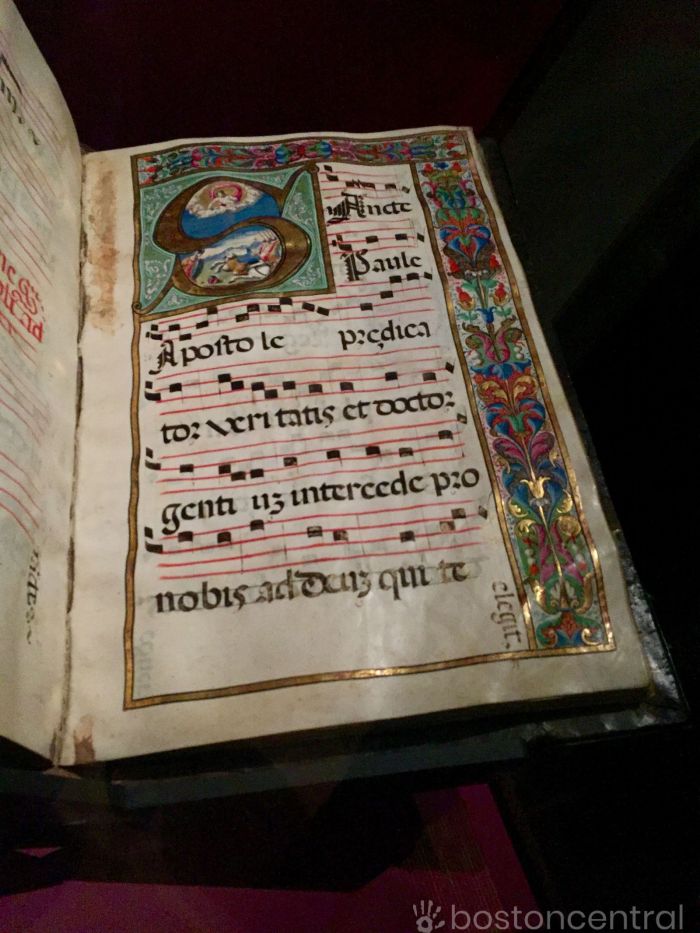 SAncte
Paule
Aposto le predica
tor veri tatis et doctor
genti uz intercede pro
nobis ad Deuz qui te
elegit.
bostoncentral